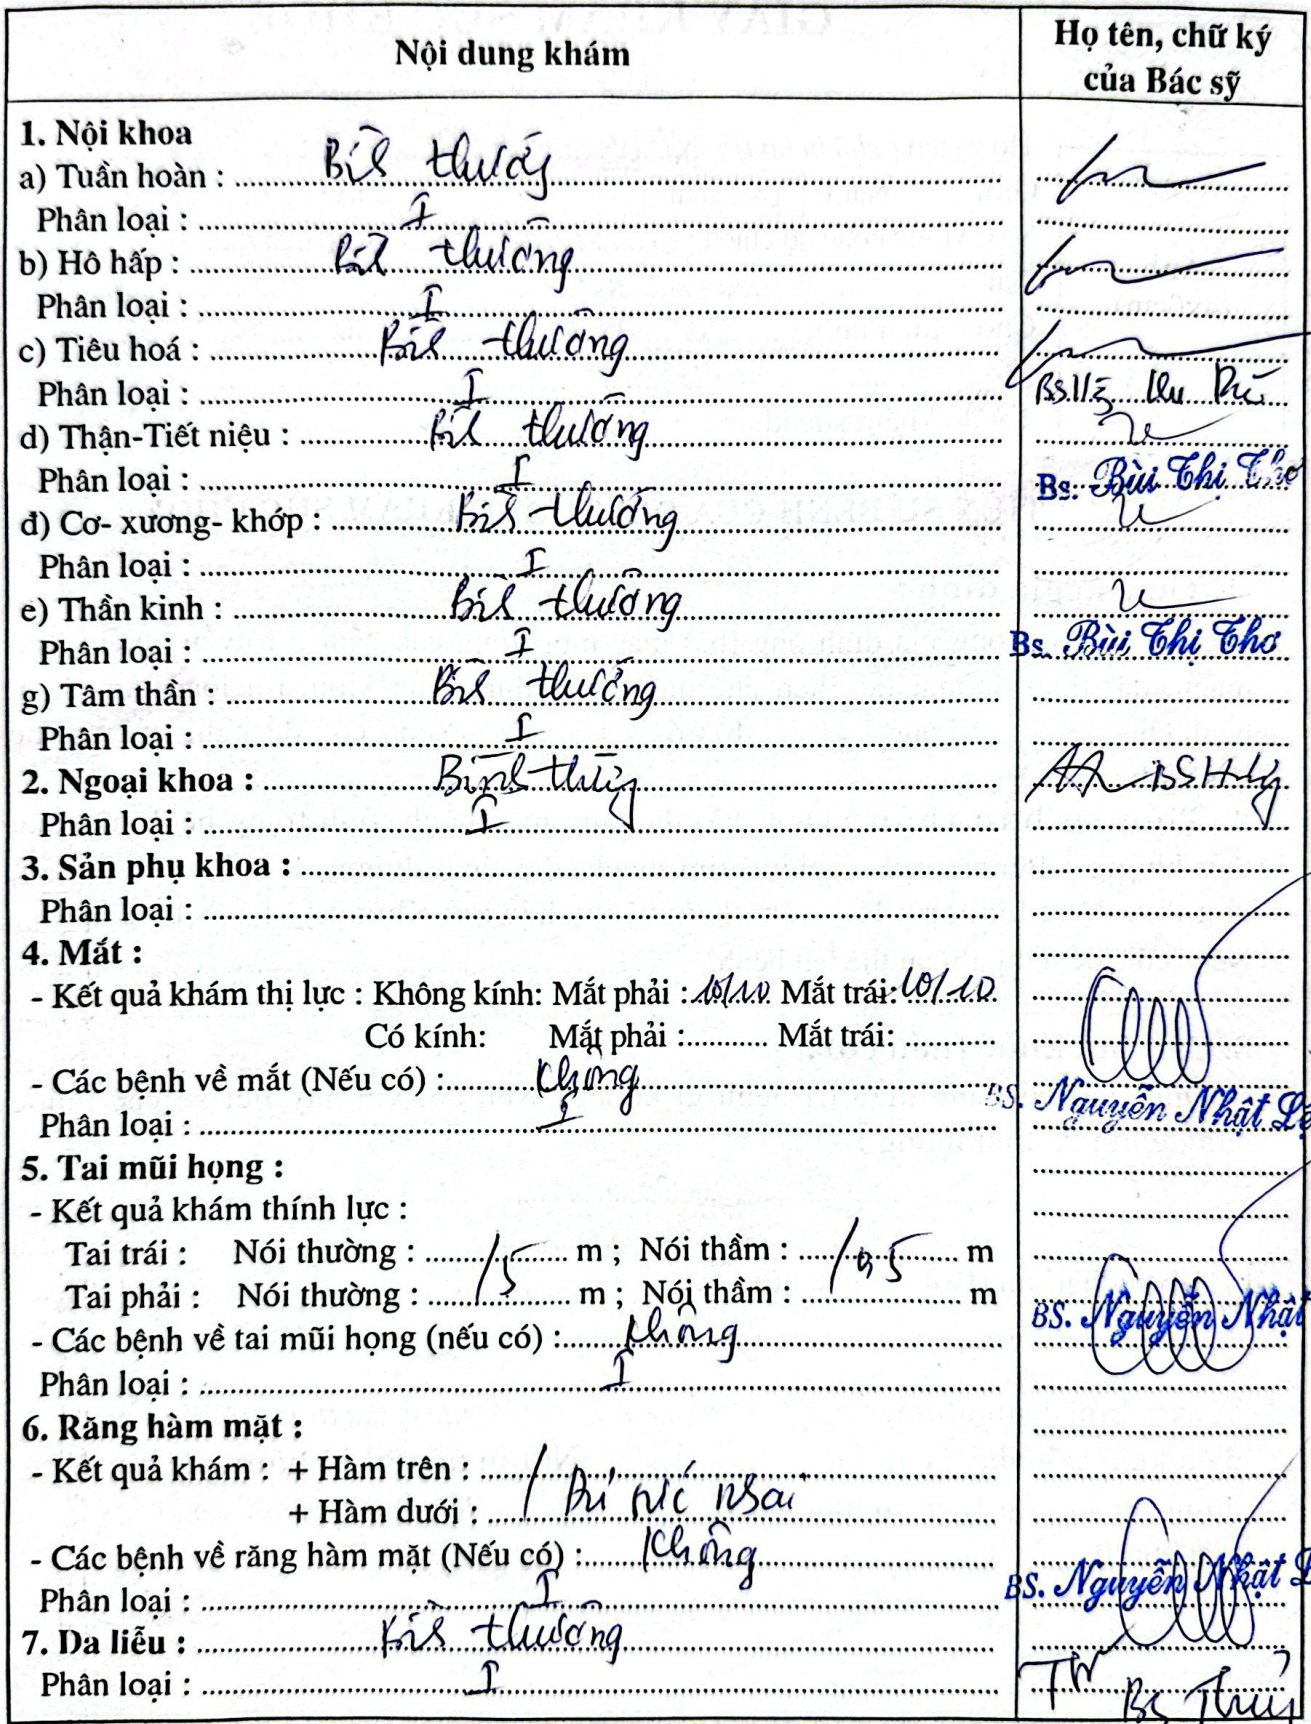 Nội dung khám
Họ tên, chữ ký
của Bác sỹ
1. Nội khoa
a) Tuần hoàn : Bình thường
Phân loại : I
b) Hô hấp : Bình thường
Phân loại : I
c) Tiêu hoá : Bình thường
Phân loại : I
BS
d) Thận-Tiết niệu : Bình thường
Phân loại : I
Bs. Bùi Thị Thơ
đ) Cơ- xương- khớp : Bình thường
Phân loại : I
e) Thần kinh : Bình thường
Phân loại : I
Bs. Bùi Thị Thơ
g) Tâm thần : Bình thường
Phân loại : I
2. Ngoại khoa : Bình thường
Phân loại : I
3. Sản phụ khoa :
Phân loại :
4. Mắt :
- Kết quả khám thị lực : Không kính: Mắt phải : 10/10 Mắt trái: 10/10
Có kính: Mắt phải : Mắt trái:
- Các bệnh về mắt (Nếu có) : Không
Phân loại : I
BS. Nguyễn Nhật
5. Tai mũi họng :
- Kết quả khám thính lực :
Tai trái : Nói thường : 5 m ; Nói thầm : 0,5 m
Tai phải : Nói thường : m ; Nói thầm : m
BS. Nguyễn Nhật
- Các bệnh về tai mũi họng (nếu có) : Không
Phân loại : I
6. Răng hàm mặt :
- Kết quả khám : + Hàm trên :
+ Hàm dưới : nhai
- Các bệnh về răng hàm mặt (Nếu có) : Không
Phân loại : I
BS. Nguyễn Nhật
7. Da liễu : Bình thường
Phân loại : I
Bs